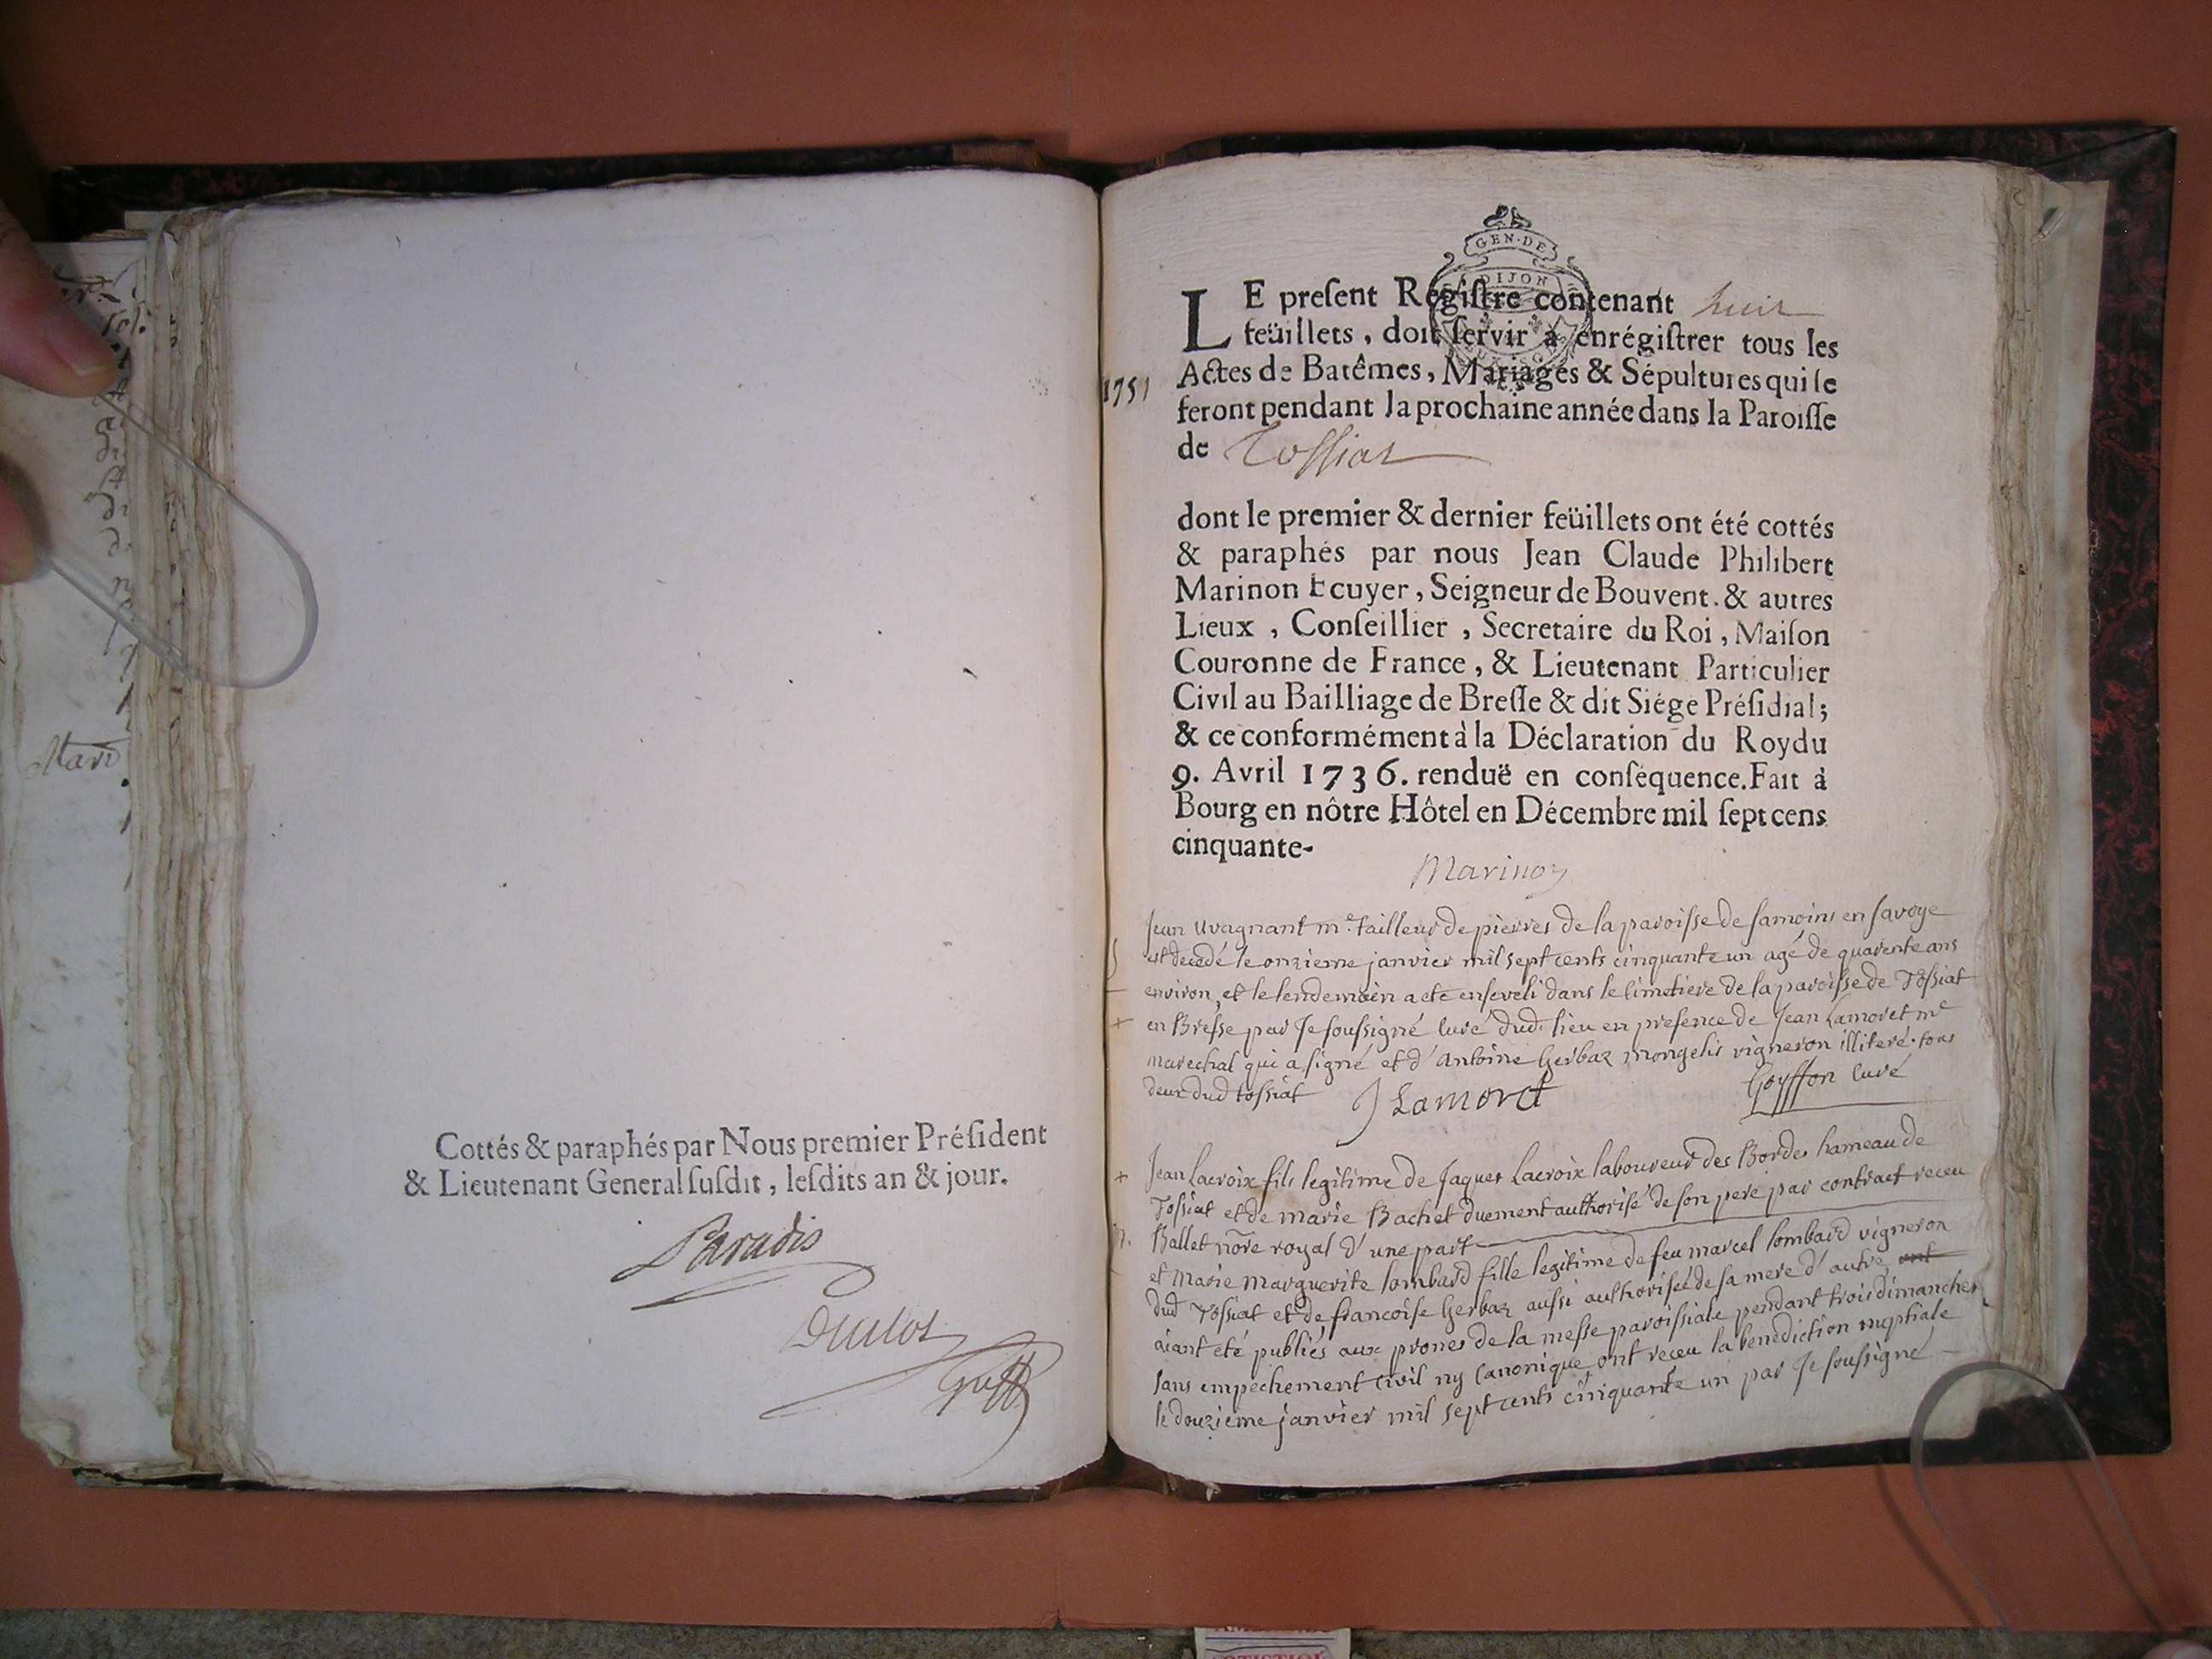 Cottés & paraphés par Nous premier Préſident
& Lieutenant General ſuſdit, leſdits an & jour.
Paradis
Duclos
Greff
GEN·DE
DIJON
LE preſent Regiſtre contenant huit
feüillets, doit ſervir à enrégiſtrer tous les
1751
Actes de Batêmes, Mariages & Sépultures qui ſe
feront pendant la prochaine année dans la Paroiſſe
de Toſſiat
dont le premier & dernier feüillets ont été cottés
& paraphés par nous Jean Claude Philibert
Marinon Ecuyer, Seigneur de Bouvent. & autres
Lieux, Conſeillier, Secretaire du Roi, Maiſon
Couronne de France, & Lieutenant Particulier
Civil au Bailliage de Breſſe & dit Siége Préſidial;
& ce conformément à la Déclaration du Roy du
9. Avril 1736. renduë en conſéquence. Fait à
Bourg en nôtre Hôtel en Décembre mil ſept cens
cinquante-
Marinon
Jean Uvagnant m.e tailleur de pierres de la paroisse de samoins en savoye
est decedé le onzieme janvier mil sept cents cinquante un agé de quarente ans
environ, et le lendemain a eté enseveli dans le cimetiere de la paroisse de Tossiat
+ en Bresse par Je soussigné curé dud. lieu en presence de Jean Lamoret me
marechal qui a signé et d'antoine Gerbaz mongelis vigneron illiteré. tous
deux dud tossiat J Lamoret Goyffon curé
+ Jean Lacroix fils legitime de Jaques Lacroix laboureur des Bordes hameau de
Tossiat et de marie Bachet duement authorisé de son pere par contract receu
Ballet nõre royal d'une part
et Marie Marguerite lombard fille legitime de feu marcel lombard vigneron
dud Tossiat et de francoise Gerbaz aussi authorisée de sa mere d'autre ont
aiant été publiés aux prones de la messe paroissiale pendant trois dimanches
sans empechement civil ny canonique ont receu la benediction nuptiale
le douzieme janvier mil sept cents cinquante un par Je soussigné